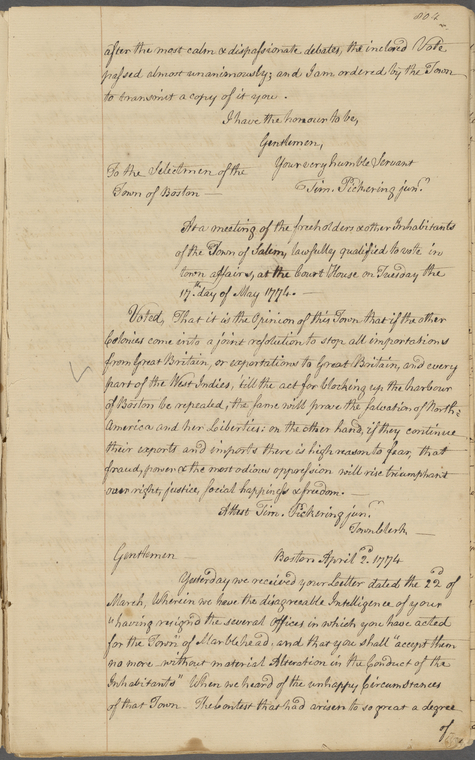 after the most calm & dispassionate debates, the inclosed Vote
passed almost unanimously; and I am ordered by the Town
to transmit a copy of it you.
I have the honour to be,
Gentlemen,
Your very humble Servant
To the Selectmen of the
Tim. Pickering junr.
Town of Boston —
At a meeting of the freeholders & other Inhabitants
of the Town of Salem, lawfully qualified to vote in
town affairs, at the Court House on Tuesday the
17.th day of May 1774. —
Voted, That it is the Opinion of this Town that if the other
Colonies come into a joint resolution to stop all importations
from Great Britain, or exportations to Great Britain, and every
part of the West Indies, 'till the act for blocking up the harbour
of Boston be repealed, the same will prove the salvation of North=
America and her Liberties: on the other hand, if they continue
their exports and imports there is high reason to fear, that
fraud, power & the most odious oppression will rise triumphant
over right, justice, social happiness & freedom. —
Attest Tim. Pickering junr.
Townclerk —
Gentlemen
Boston April 2d. 1774
Yesterday we received your Letter dated the 22d of
March, Wherein we have the disagreeable Intelligence of your
"having resignd the several offices in which you have acted
for the Town" of Marblehead: and that you shall "accept them
no more without material Alteration in the Conduct of the
Inhabitants" When we heard of the unhappy Circumstances
of that Town. The Contest that had arisen to so great a degree
of